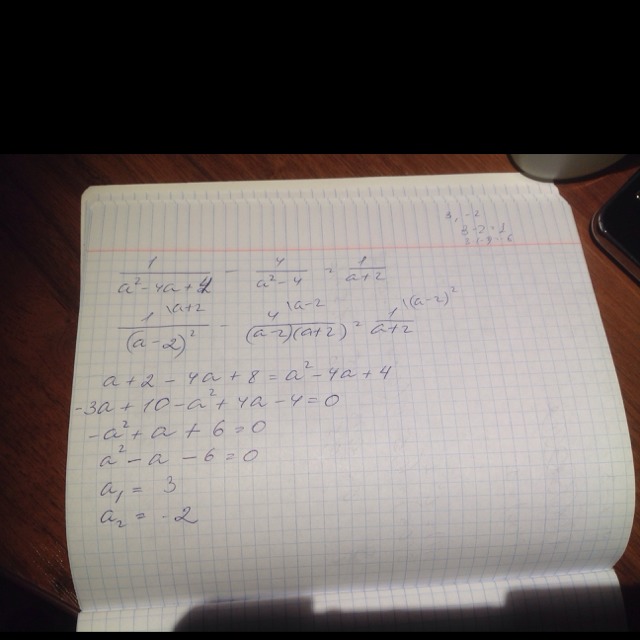 3, -2
3-2=1
1/(a²-4a+4) - 4/(a²-4) = 1/(a+2)
1\a+2/(a-2)² - 4\a-2/((a-2)(a+2)) = 1\(a-2)²/(a+2)
a+2-4a+8=a²-4a+4
-3a+10-a²+4a-4=0
-a²+a+6=0
a²-a-6=0
a₁=3
a₂=-2